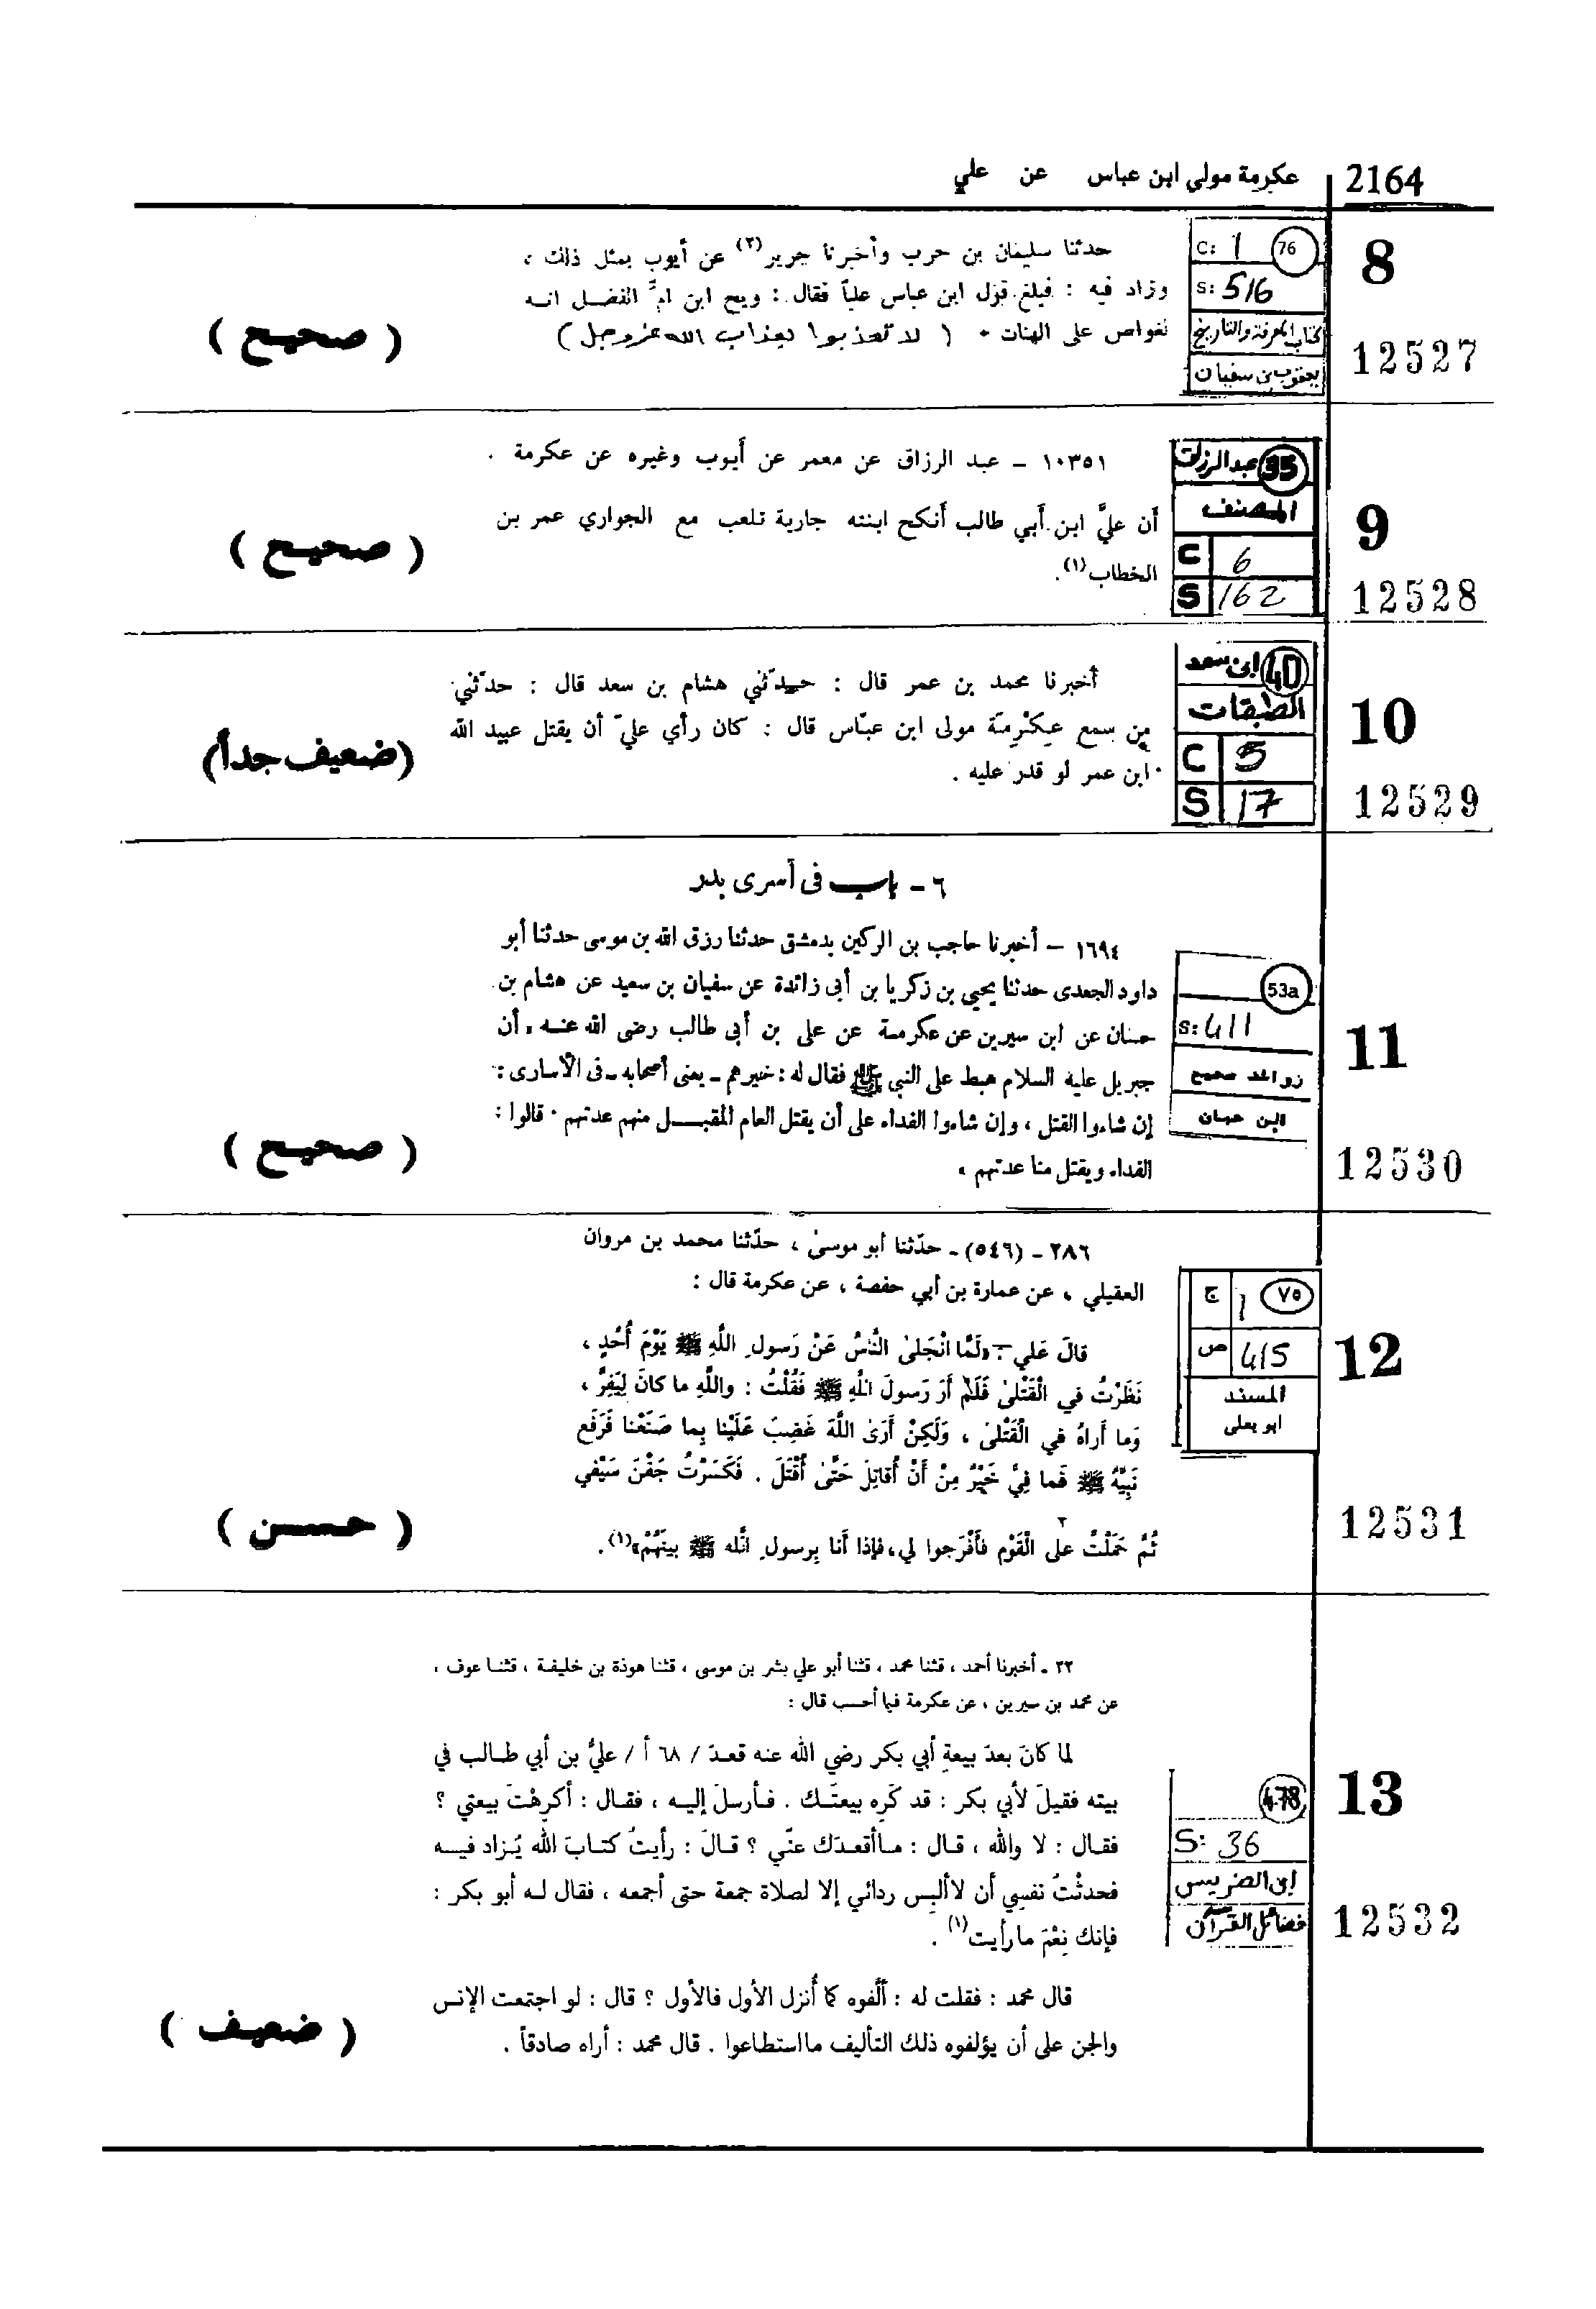 2164
عكرمة مولى ابن عباس عن علي
8
12527
C: 1 76
S: 516
كتاب المعرفة والتاريخ
يعقوب بن سفيان
حدثنا سليمان بن حرب وأخبرنا جرير(٣) عن أيوب بمثل ذلك ،
وزاد فيه : فبلغ قول ابن عباس علياً فقال : ويح ابن امّ الفضل انه
لغواص على الهنات • ( لا تعذبوا بعذاب الله عزوجل )
( صحيح )
9
12528
عبدالرزاق 35
المصنف
C 6
S 162
١٠٣٥١ – عبد الرزاق عن معمر عن أيوب وغيره عن عكرمة .
أن عليَّ ابن أبي طالب أنكح ابنته جارية تلعب مع الجواري عمر بن
الخطاب(١).
( صحيح )
10
12529
ابن سعد 40
الطبقات
C 5
S 17
أخبرنا محمد بن عمر قال : حدّثني هشام بن سعد قال : حدّثني
من سمع عِكْرِمَة مولى ابن عبّاس قال : كان رأي عليّ أن يقتل عبيد الله
ابن عمر لو قدر عليه .
(ضعيف جداً)
٦ – باب فى أسرى بدر
11
12530
53a
S: 411
زوائد صحيح
ابن حبان
١٦٩٤ – أخبرنا حاجب بن الركين بدمشق حدثنا رزق الله بن موسى حدثنا أبو
داود الجعدى حدثنا يحيى بن زكريا بن أبى زائدة عن سفيان بن سعيد عن هشام بن
حسان عن ابن سيرين عن عكرمة عن على بن أبى طالب رضى الله عنه ، أن
جبريل عليه السلام هبط على النبي ﷺ فقال له : خيرهم – يعنى أصحابه – فى الأسارى :
إن شاءوا القتل ، وإن شاءوا الفداء على أن يقتل العام المقبل منهم عدتهم • قالوا :
الفداء ويقتل منا عدتهم ،
( صحيح )
12
12531
ج 1 ٧٥
ص 415
المسند
ابو يعلى
٢٨٦ – (٥٤٦) – حدّثنا أبو موسىٰ ، حدّثنا محمد بن مروان
العقيلي ، عن عمارة بن أبي حفصة ، عن عكرمة قال :
قالَ عَلي : «لَمَّا انْجَلىٰ النَّاسُ عَنْ رَسولِ اللَّهِ ﷺ يَوْمَ أُحُدٍ ،
نَظَرْتُ في الْقَتْلىٰ فَلَمْ أَرَ رَسولَ اللَّهِ ﷺ فَقُلْتُ : واللَّهِ ما كانَ لِيَفِرَّ ،
وَما أَراهُ في الْقَتْلىٰ ، وَلَكِنْ أَرىٰ اللَّهَ غَضِبَ عَلَيْنا بِما صَنَعْنا فَرَفَع
نَبِيَّهُ ﷺ فَما فِيَّ خَيْرٌ مِنْ أَنْ أُقاتِلَ حَتَّىٰ أُقْتَلَ . فَكَسَرْتُ جَفْنَ سَيْفي
ثُمَّ حَمَلْتُ على الْقَوْمِ فأَفْرَجوا لي، فإذا أَنا بِرسولِ اللَّه ﷺ بينَهُمْ»(١).
( حسن )
13
12532
478
S: 36
ابن الضريس
فضائل القرآن
٢٢ ـ أخبرنا أحمد ، قثنا محمد ، قثنا أبو علي بشر بن موسى ، قثنا هوذة بن خليفة ، قثنا عوف ،
عن محمد بن سيرين ، عن عكرمة فيما أحسب قال :
لما كانَ بعدَ بيعةِ أبي بكر رضي الله عنه قعدَ / ٦٨ أ / عليُّ بن أبي طالب في
بيته فقيلَ لأبي بكر : قد كَرِه بيعتَك . فأرسلَ إليه ، فقال : أكرِهْتَ بيعتي ؟
فقال : لا والله ، قال : ماأقعدَك عنّي ؟ قالَ : رأيتُ كتابَ الله يُزاد فيه
فحدثْتُ نفسي أن لاألبس ردائي إلا لصلاة جمعة حتى أجمعه ، فقال له أبو بكر :
فإنك نِعْمَ مارأيت(١) .
قال محمد : فقلت له : ألَّفوه كما أُنزل الأول فالأول ؟ قال : لو اجتمعت الإنس
والجن على أن يؤلفوه ذلك التأليف مااستطاعوا . قال محمد : أراه صادقاً .
( ضعيف )